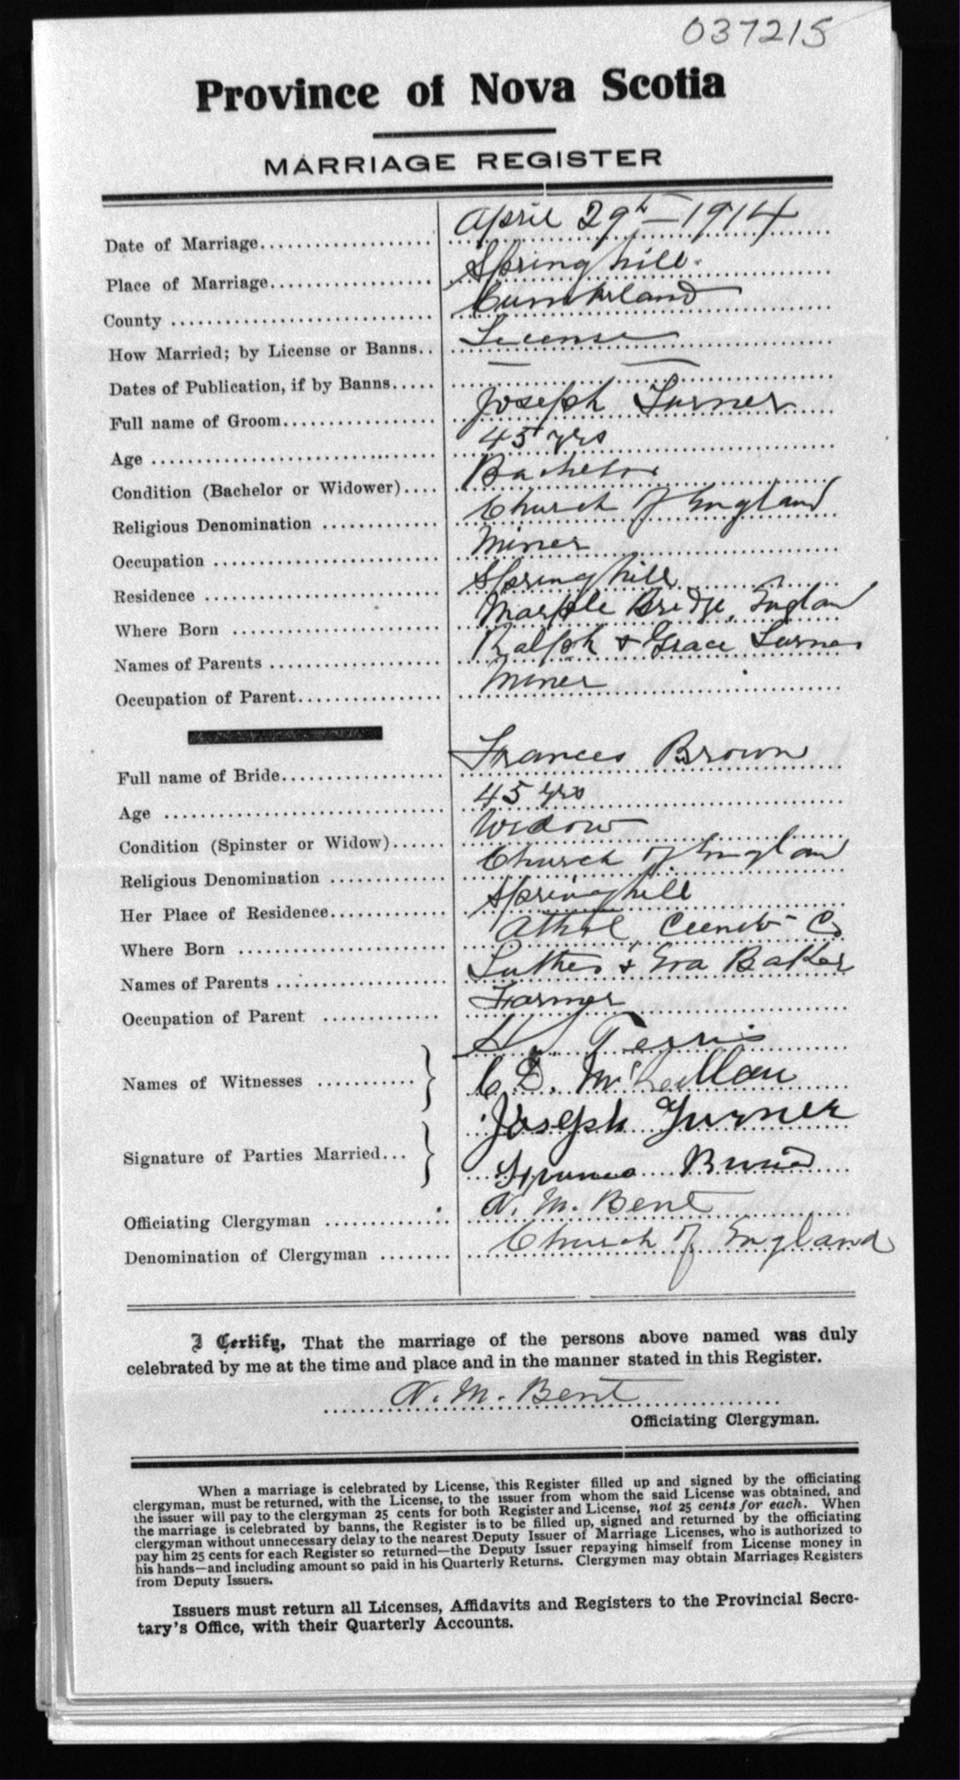 037215
Province of Nova Scotia
MARRIAGE REGISTER
Date of Marriage.................... April 29th — 1914
Place of Marriage................... Springhill.
County ............................. Cumberland
How Married; by License or Banns.. License
Dates of Publication, if by Banns..... — —
Full name of Groom.................. Joseph Turner
Age ................................ 45 yrs
Condition (Bachelor or Widower).... Bachelor
Religious Denomination ............ Church of England
Occupation ......................... Miner
Residence .......................... Springhill
Where Born ......................... Marple Bridge, England
Names of Parents ................... Ralph & Grace Turner
Occupation of Parent................ Miner
Full name of Bride.................. Frances Brown
Age ................................ 45 yrs
Condition (Spinster or Widow)...... Widow
Religious Denomination ............ Church of England
Her Place of Residence............. Springhill
Where Born ......................... Athol, Cumb Co
Names of Parents ................... Luther & Eva Baker
Occupation of Parent ............. Farmer
Names of Witnesses ........... } H. Terris
C. D.
Signature of Parties Married... } Joseph Turner
Frances Brown
Officiating Clergyman ............. N. M. Bent
Denomination of Clergyman ........ Church of England
I Certify, That the marriage of the persons above named was duly
celebrated by me at the time and place and in the manner stated in this Register.
N. M. Bent
Officiating Clergyman.
When a marriage is celebrated by License, this Register filled up and signed by the officiating
clergyman, must be returned, with the License, to the issuer from whom the said License was obtained, and
the issuer will pay to the clergyman 25 cents for both Register and License, not 25 cents for each. When
the marriage is celebrated by banns, the Register is to be filled up, signed and returned by the officiating
clergyman without unnecessary delay to the nearest Deputy Issuer of Marriage Licenses, who is authorized to
pay him 25 cents for each Register so returned—the Deputy Issuer repaying himself from License money in
his hands—and including amount so paid in his Quarterly Returns. Clergymen may obtain Marriages Registers
from Deputy Issuers.
Issuers must return all Licenses, Affidavits and Registers to the Provincial Secre-
tary's Office, with their Quarterly Accounts.